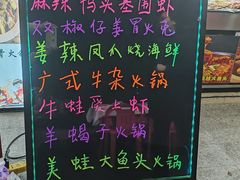 麻辣码头基围虾
双椒仔姜冒火兔
姜辣凤爪烧海鲜
广式牛杂火锅
牛蛙爱上虾
羊蝎子火锅
美蛙大鱼头火锅